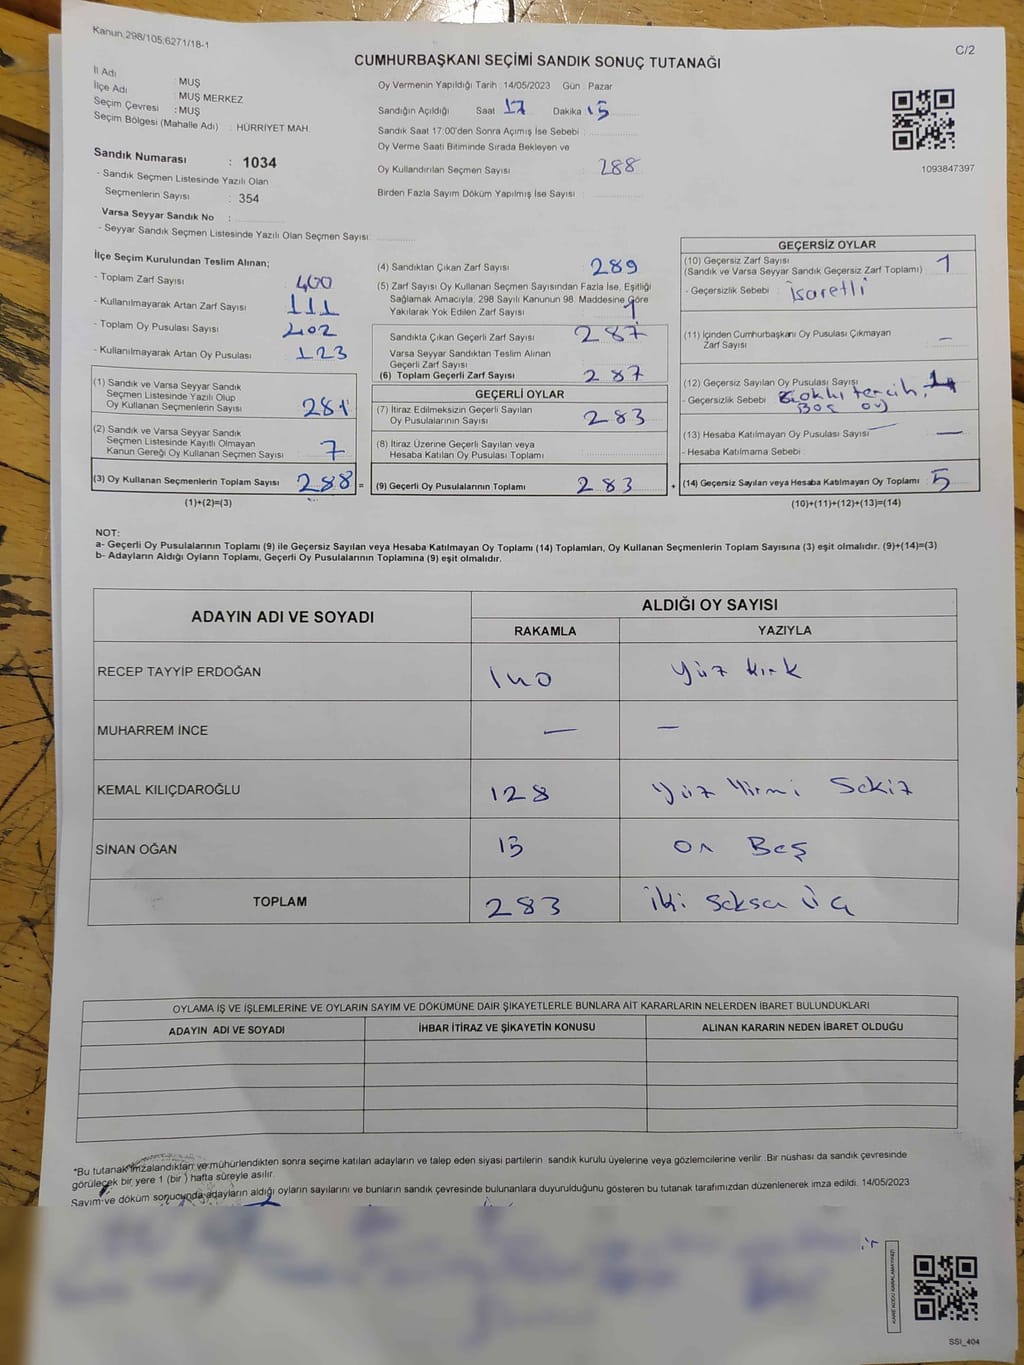 Kanun.298/105,6271/18-1
C/2
CUMHURBAŞKANI SEÇİMİ SANDIK SONUÇ TUTANAĞI
İl Adı : MUŞ
İlçe Adı : MUŞ MERKEZ
Seçim Çevresi : MUŞ
Seçim Bölgesi (Mahalle Adı) : HÜRRİYET MAH.
Sandık Numarası : 1034
- Sandık Seçmen Listesinde Yazılı Olan
Seçmenlerin Sayısı : 354
Varsa Seyyar Sandık No :
- Seyyar Sandık Seçmen Listesinde Yazılı Olan Seçmen Sayısı:
Oy Vermenin Yapıldığı Tarih : 14/05/2023 Gün : Pazar
Sandığın Açıldığı Saat 17 Dakika 15
Sandık Saat 17:00'den Sonra Açımış İse Sebebi :
Oy Verme Saati Bitiminde Sırada Bekleyen ve
Oy Kullandırılan Seçmen Sayısı : 288
Birden Fazla Sayım Döküm Yapılmış İse Sayısı :
1093847397
İlçe Seçim Kurulundan Teslim Alınan;
- Toplam Zarf Sayısı 400
- Kullanılmayarak Artan Zarf Sayısı 111
- Toplam Oy Pusulası Sayısı 402
- Kullanılmayarak Artan Oy Pusulası 123
(1) Sandık ve Varsa Seyyar Sandık
Seçmen Listesinde Yazılı Olup
Oy Kullanan Seçmenlerin Sayısı 281
(2) Sandık ve Varsa Seyyar Sandık
Seçmen Listesinde Kayıtlı Olmayan
Kanun Gereği Oy Kullanan Seçmen Sayısı 7
(3) Oy Kullanan Seçmenlerin Toplam Sayısı 288 =
(1)+(2)=(3)
(4) Sandıktan Çıkan Zarf Sayısı 289
(5) Zarf Sayısı Oy Kullanan Seçmen Sayısından Fazla İse, Eşitliği
Sağlamak Amacıyla, 298 Sayılı Kanunun 98. Maddesine Göre
Yakılarak Yok Edilen Zarf Sayısı 1
Sandıkta Çıkan Geçerli Zarf Sayısı 287
Varsa Seyyar Sandıktan Teslim Alınan
Geçerli Zarf Sayısı
(6) Toplam Geçerli Zarf Sayısı 287
GEÇERLİ OYLAR
(7) İtiraz Edilmeksizin Geçerli Sayılan
Oy Pusulalarının Sayısı 283
(8) İtiraz Üzerine Geçerli Sayılan veya
Hesaba Katılan Oy Pusulası Toplamı
(9) Geçerli Oy Pusulalarının Toplamı 283 +
GEÇERSİZ OYLAR
(10) Geçersiz Zarf Sayısı
(Sandık ve Varsa Seyyar Sandık Geçersiz Zarf Toplamı) 1
- Geçersizlik Sebebi : İsaretli
(11) İçinden Cumhurbaşkanı Oy Pusulası Çıkmayan
Zarf Sayısı —
(12) Geçersiz Sayılan Oy Pusulası Sayısı
- Geçersizlik Sebebi tercih,
Boş oy
(13) Hesaba Katılmayan Oy Pusulası Sayısı —
- Hesaba Katılmama Sebebi :
(14) Geçersiz Sayılan veya Hesaba Katılmayan Oy Toplamı 5
(10)+(11)+(12)+(13)=(14)
NOT:
a- Geçerli Oy Pusulalarının Toplamı (9) ile Geçersiz Sayılan veya Hesaba Katılmayan Oy Toplamı (14) Toplamları, Oy Kullanan Seçmenlerin Toplam Sayısına (3) eşit olmalıdır. (9)+(14)=(3)
b- Adayların Aldığı Oyların Toplamı, Geçerli Oy Pusulalarının Toplamına (9) eşit olmalıdır.
ADAYIN ADI VE SOYADI
ALDIĞI OY SAYISI
RAKAMLA YAZIYLA
RECEP TAYYİP ERDOĞAN 140 Yüz kırk
MUHARREM İNCE — —
KEMAL KILIÇDAROĞLU 128 Yüz Yirmi Sekiz
SİNAN OĞAN 15 On Beş
TOPLAM 283 iki seksen Üç
OYLAMA İŞ VE İŞLEMLERİNE VE OYLARIN SAYIM VE DÖKÜMÜNE DAİR ŞİKAYETLERLE BUNLARA AİT KARARLARIN NELERDEN İBARET BULUNDUKLARI
ADAYIN ADI VE SOYADI İHBAR İTİRAZ VE ŞİKAYETİN KONUSU ALINAN KARARIN NEDEN İBARET OLDUĞU
*Bu tutanak imzalandıktan ve mühürlendikten sonra seçime katılan adayların ve talep eden siyasi partilerin sandık kurulu üyelerine veya gözlemcilerine verilir. Bir nüshası da sandık çevresinde
görülecek bir yere 1 (bir) hafta süreyle asılır.
Sayım ve döküm sonucunda adayların aldığı oyların sayılarını ve bunların sandık çevresinde bulunanlara duyurulduğunu gösteren bu tutanak tarafımızdan düzenlenerek imza edildi. 14/05/2023
KARE KODU KARALAMAYINIZ!
SSI_404